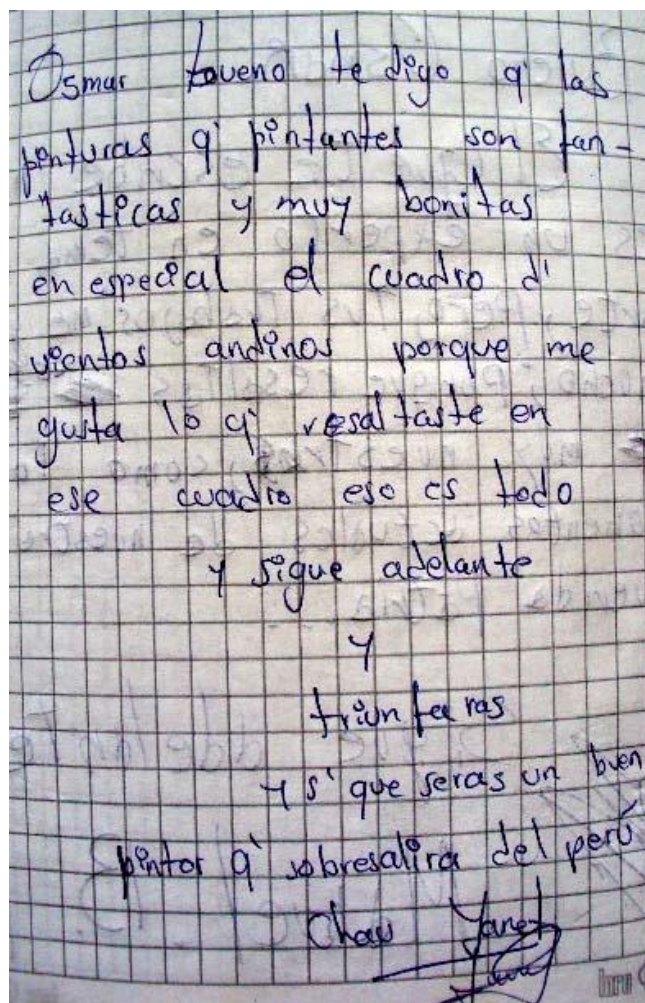 Osmar bueno te digo q' las
pinturas q' pintantes son fan-
tasticas y muy bonitas
en especial el cuadro d'
vientos andinos porque me
gusta lo q' resaltaste en
ese cuadro eso es todo
y sigue adelante
y
triunfaras
y s' que seras un buen
pintor q' sobresalira del perú
Chau Yanet